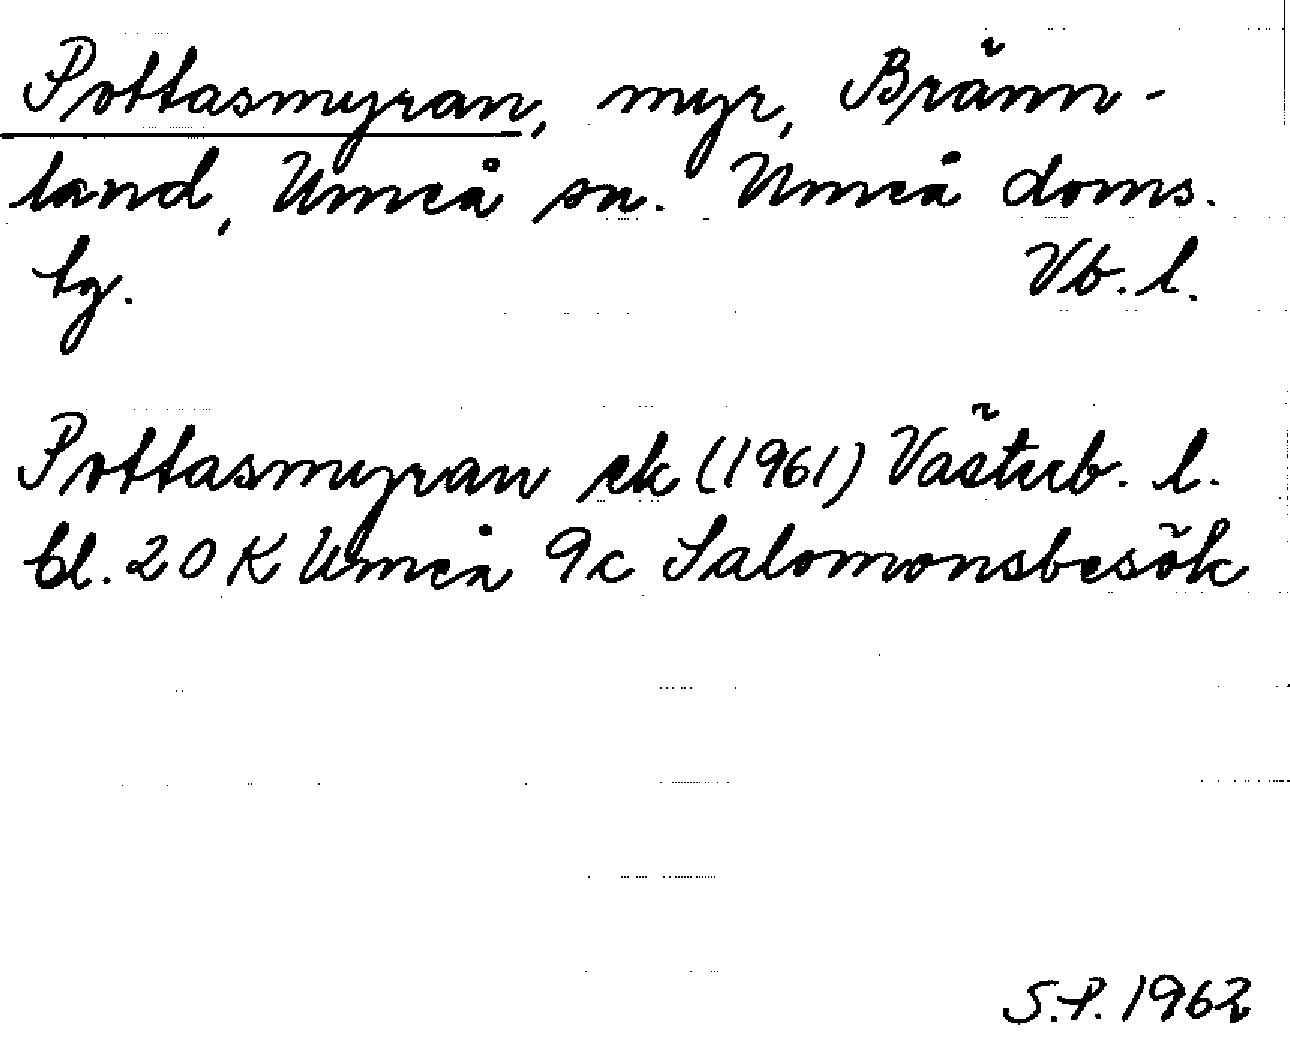 Pottasmyran, myr, Bränn-
land, Umeå sn. Umeå doms.
tg. Vb. l.
Pottasmyran ek (1961) Västerb. l.
bl. 20 K Umeå 9c Salomonsbesök
S.P. 1962